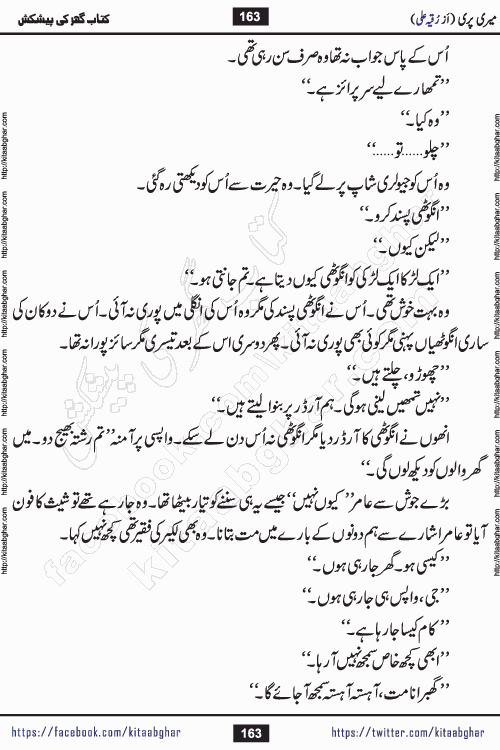 میری پری (از رُقیہ علی)
163
کتاب گھر کی پیشکش
اُس کے پاس جواب نہ تھا وہ صرف سن رہی تھی۔
’’تمھارے لیے سرپرائز ہے۔‘‘
’’وہ کیا۔‘‘
’’چلو......تو......‘‘
وہ اُس کو جیولری شاپ پر لے گیا۔ وہ حیرت سے اُس کو دیکھتی رہ گئی۔
’’انگوٹھی پسند کرو۔‘‘
’’لیکن کیوں۔‘‘
’’ایک لڑکا ایک لڑکی کو انگوٹھی کیوں دیتا ہے۔ تم جانتی ہو۔‘‘
وہ بہت خوش تھی۔ اُس نے انگوٹھی پسند کی مگر وہ اُس کی انگلی میں پوری نہ آئی۔ اُس نے دوکان کی
ساری انگوٹھیاں پہنی مگر کوئی بھی پوری نہ آئی۔ پھر دوسری اس کے بعد تیسری مگر سائز پورا نہ تھا۔
’’چھوڑو، چلتے ہیں۔‘‘
’’نہیں تمھیں لینی ہوگی۔ ہم آرڈر پر بنوا لیتے ہیں۔‘‘
انھوں نے انگوٹھی کا آرڈر دیا مگر انگوٹھی نہ اُس دن لے سکے۔ واپسی پر آمنہ ’’تم رشتہ بھیج دو۔ میں
گھر والوں کو دیکھ لوں گی۔‘‘
بڑے جوش سے عامر ’’کیوں نہیں‘‘ جیسے یہ ہی سننے کو تیار بیٹھا تھا۔ وہ جا رہے تھے تو شیث کا فون
آیا تو عامر اشارے سے ہم دونوں کے بارے میں مت بتانا۔ وہ بھی لکیر کی فقیر تھی کچھ نہیں کہا۔
’’کیسی ہو۔ گھر جا رہی ہوں۔‘‘
’’جی، واپس ہی جا رہی ہوں۔‘‘
’’کام کیسا جا رہا ہے۔‘‘
’’ابھی کچھ خاص سمجھ نہیں آ رہا۔‘‘
’’گھبرانا مت، آہستہ آہستہ سمجھ آ جائے گا۔‘‘
http://kitaabghar.com
http://kitaabghar.com
http://kitaabghar.com
http://kitaabghar.com
http://kitaabghar.com
http://kitaabghar.com
http://kitaabghar.com
http://kitaabghar.com
http://kitaabghar.com
http://kitaabghar.com
http://kitaabghar.com
http://kitaabghar.com
کتاب گھر کی پیشکش
kitaabghar.com
facebook.com/kitaabghar
https://facebook.com/kitaabghar
163
https://twitter.com/kitaabghar